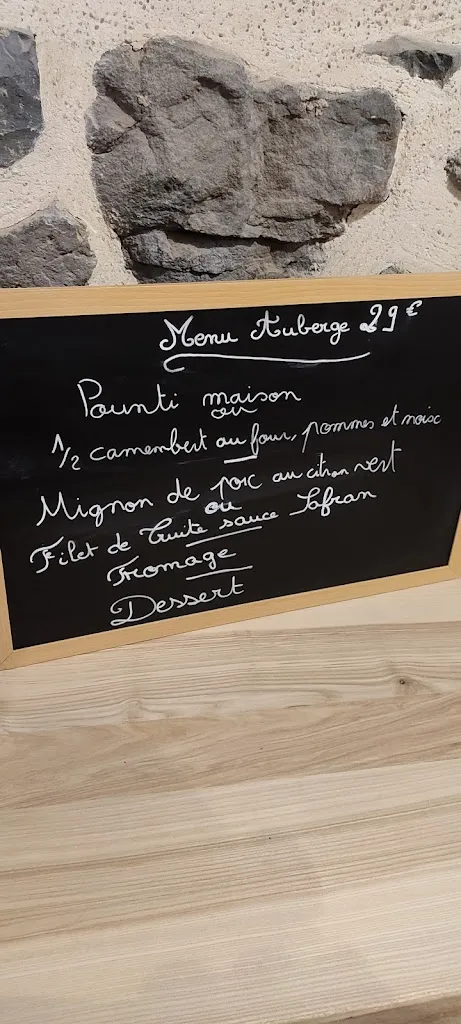 Menu Auberge 29 €
Pounti maison
ou
1/2 camembert au four, pommes et noisc
Mignon de porc au citron vert
ou
Filet de Truite sauce Safran
Fromage
Dessert